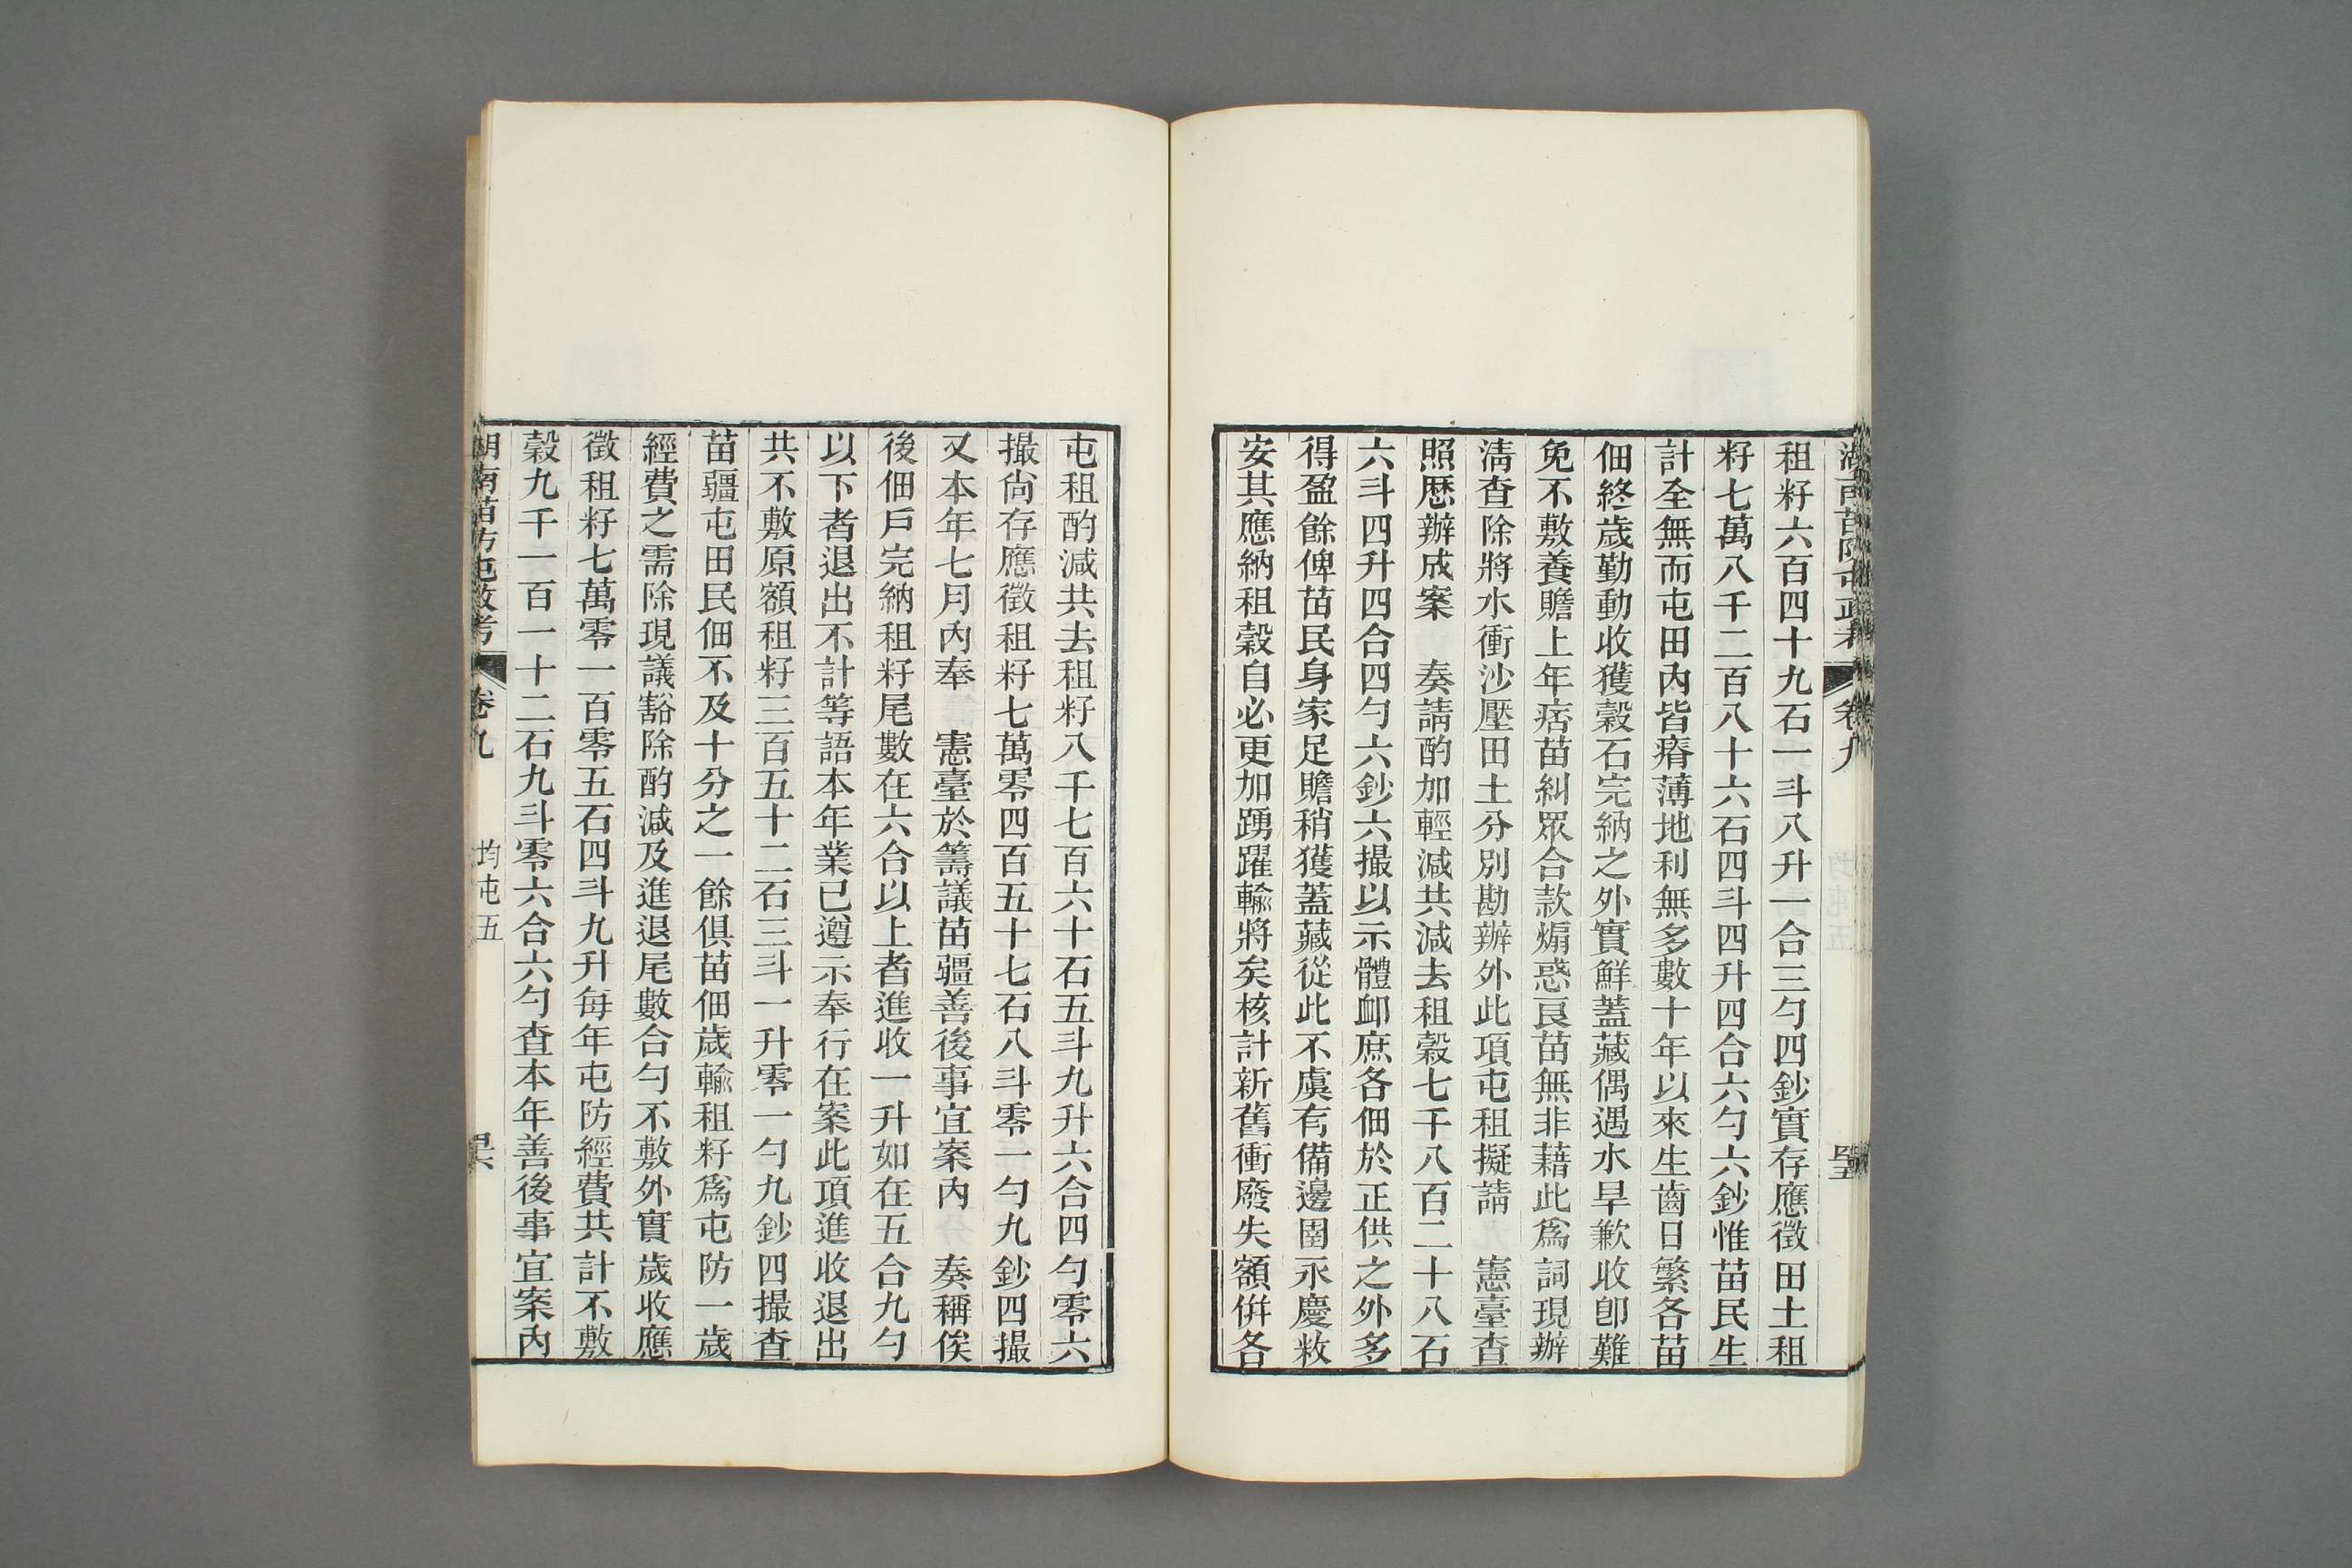 湖南苗防屯政考 卷九
租籽六百四十九石一斗八升一合三勺四鈔實存應徵田土租
籽七萬八千二百八十六石四斗四升四合六勺六鈔惟苗民生
計全無而屯田內皆瘠薄地利無多數十年以來生齒日繁各苗
佃終歲勤動收獲穀石完納之外實鮮蓋藏偶遇水旱歉收卽難
免不敷養贍上年痞苗糾眾合款煽惑良苗無非藉此爲詞現辦
淸查除將水衝沙壓田土分別勘辦外此項屯租擬請 憲臺查
照歷辦成案 奏請酌加輕減共減去租穀七千八百二十八石
六斗四升四合四勺六鈔六撮以示體卹庶各佃於正供之外多
得盈餘俾苗民身家足贍稍獲蓋藏從此不虞有備邊圉永慶敉
安其應納租穀自必更加踴躍輸將矣核計新舊衝廢失額併各
屯租酌減共去租籽八千七百六十石五斗九升六合四勺零六
撮尙存應徵租籽七萬零四百五十七石八斗零一勺九鈔四撮
又本年七月內奉 憲臺於籌議苗疆善後事宜案內 奏稱俟
後佃戶完納租籽尾數在六合以上者進收一升如在五合九勺
以下者退出不計等語本年業已遵示奉行在案此項進收退出
共不敷原額租籽三百五十二石三斗一升零一勺九鈔四撮查
苗疆屯田民佃不及十分之一餘俱苗佃歲輸租籽爲屯防一歲
經費之需除現議豁除酌減及進退尾數合勺不敷外實歲收應
徵租籽七萬零一百零五石四斗九升每年屯防經費共計不敷
穀九千一百一十二石九斗零六合六勺查本年善後事宜案內
湖南苗防屯政考 卷九 均屯五